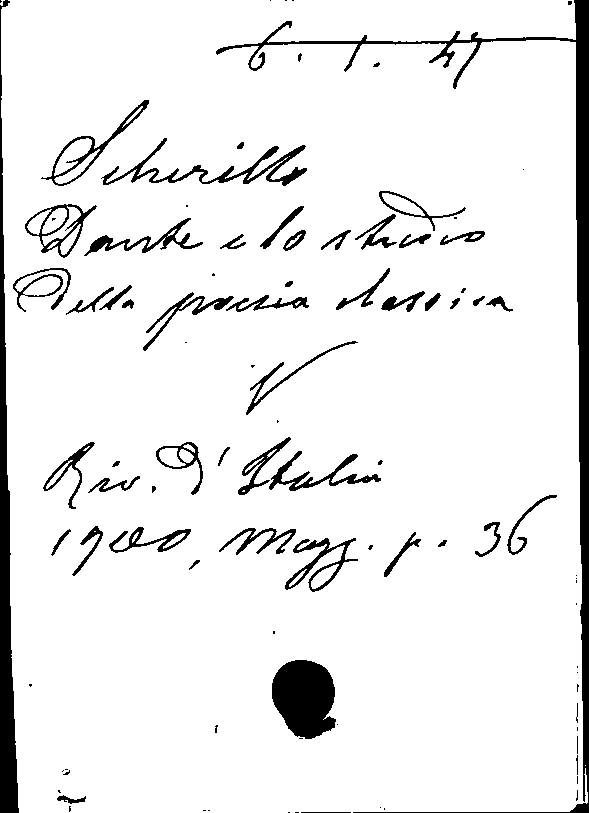 6. 1. 47
Scherillo
Dante e lo studio
della poesia classica
V
Riv. d'Italia
1900, Magg. p. 36